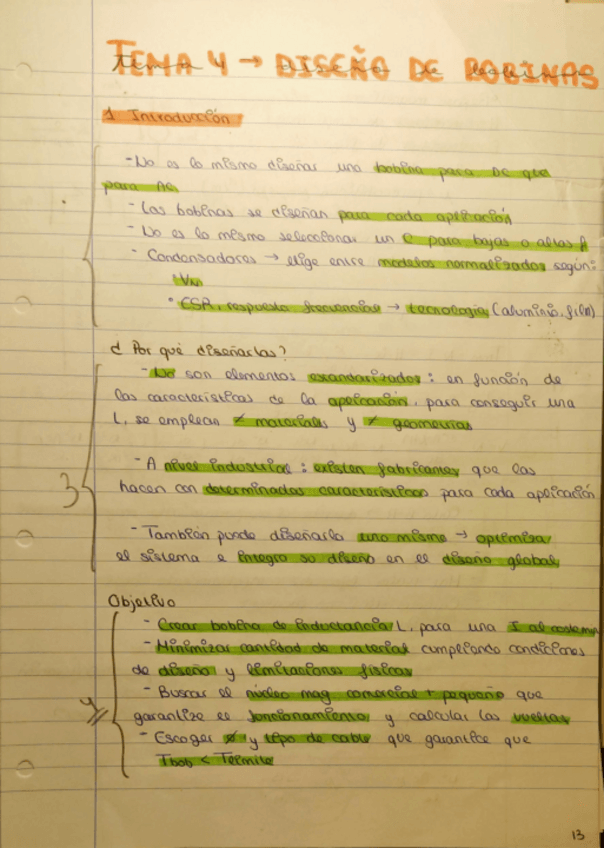 TEMA 4 → DISEÑO DE BOBINAS
1 Introducción
- No es lo mismo diseñar una bobina para DC que
para AC
- Las bobinas se diseñan para cada aplicación
- No es lo mismo seleccionar un C para bajas o altas f
- Condensadores → elige entre modelos normalizados según:
· VN
· ESR, respuesta frecuencial → tecnología (aluminio, film)
¿ Por qué diseñarlas?
- No son elementos estandarizados : en función de
las características de la aplicación, para conseguir una
L, se emplean ≠ materiales y ≠ geometrías
3
- A nivel industrial : existen fabricantes que las
hacen con determinadas características para cada aplicación
- También puedo diseñarlo uno mismo → optimiza
el sistema e integro su diseño en el diseño global
Objetivo
- Crear bobina de inductancia L, para una I al
- Minimizar cantidad de material cumpliendo condiciones
de diseño y limitaciones físicas
- Buscar el núcleo mag comercial + pequeño que
4
garantize el funcionamiento y calcular las vueltas
- Escoger ø y tipo de cable que garantice que
Tbob < Tlímite
13